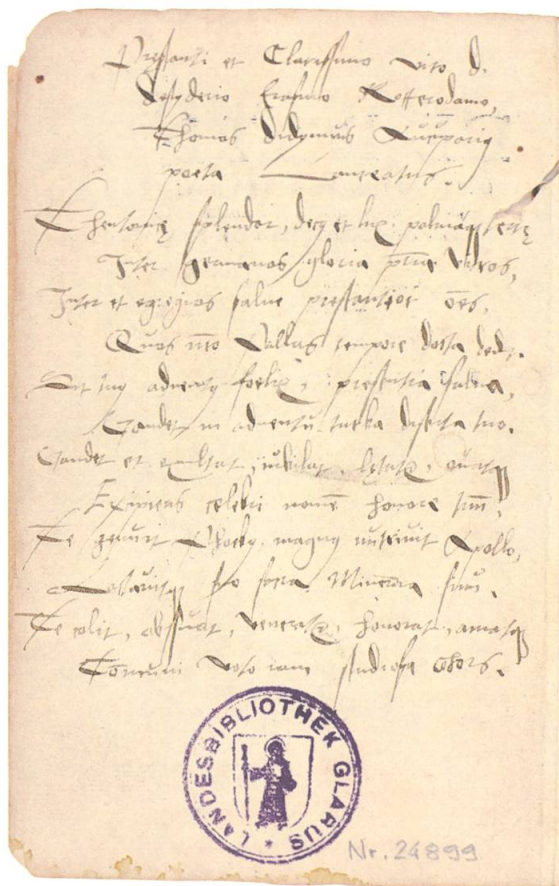 Prestanti et Clarissimo viro d.
Desyderio Erasmo Rotterodamo,
Thomas didymus Aucuparius
poeta Laureatus.
splendor, decus et lux
Inter germanos gloria prīa viros,
Inter et egregios salue prestantior oēs,
Quos nrō Pallas tempore docta dedit.
Sit tuus aduentus foelix, presentia salua,
Gaudet in aduentu turba diserta tuo.
Gaudet et exultat, iubilat, letatur, ouatque
Excipiens celebri nomē honore tuū,
Te genuit Phoebus, magnus nutriuit Apollo,
suo sacra Minerua sinu.
Te colit, obseruat, veneratur, honorat, amatque
Cōmuni voto iam studiosa cohors.
LANDESBIBLIOTHEK GLARUS
Nr. 24899